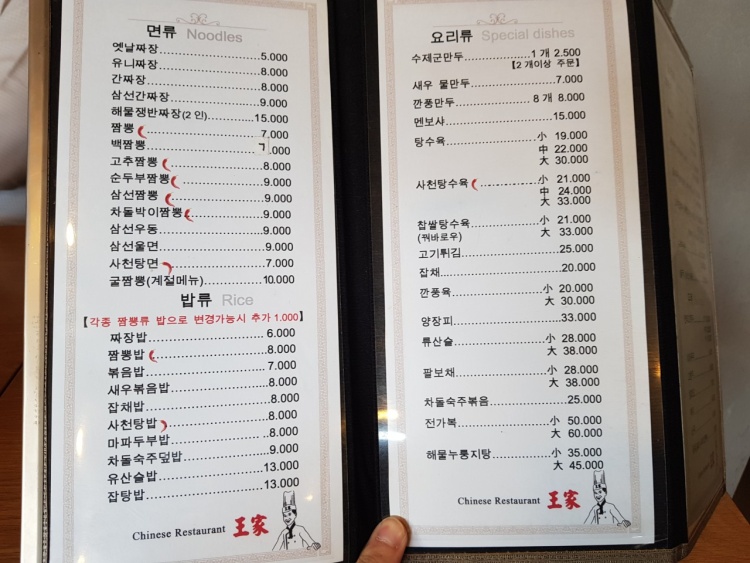 면류 Noodles
옛날짜장 5.000
유니짜장 8.000
간짜장 8.000
삼선간짜장 9.000
해물쟁반짜장(2 인) 15.000
짬뽕 7.000
백짬뽕 ㄱ.000
고추짬뽕 8.000
순두부짬뽕 9.000
삼선짬뽕 9.000
차돌박이짬뽕 9.000
삼선우동 9.000
삼선울면 9.000
사천탕면 7.000
굴짬뽕(계절메뉴) 10.000
밥류 Rice
【각종 짬뽕류 밥으로 변경가능시 추가 1.000】
짜장밥 6.000
짬뽕밥 8.000
볶음밥 7.000
새우볶음밥 8.000
잡채밥 8.000
사천탕밥 8.000
마파두부밥 8.000
차돌숙주덮밥 9.000
유산슬밥 13.000
잡탕밥 13.000
Chinese Restaurant 王家
요리류 Special dishes
수제군만두 1 개 2.500
【2 개이상 주문】
새우 물만두 7.000
깐풍만두 8 개 8.000
멘보샤 15.000
탕수육 小 19.000
中 22.000
大 30.000
사천탕수육 小 21.000
中 24.000
大 33.000
찹쌀탕수육 小 21.000
(꿔바로우) 大 33.000
고기튀김 25.000
잡채 20.000
깐풍육 小 20.000
大 30.000
양장피 33.000
류산슬 小 28.000
大 38.000
팔보채 小 28.000
大 38.000
차돌숙주볶음 25.000
전가복 小 50.000
大 60.000
해물누룽지탕 小 35.000
大 45.000
Chinese Restaurant 王家